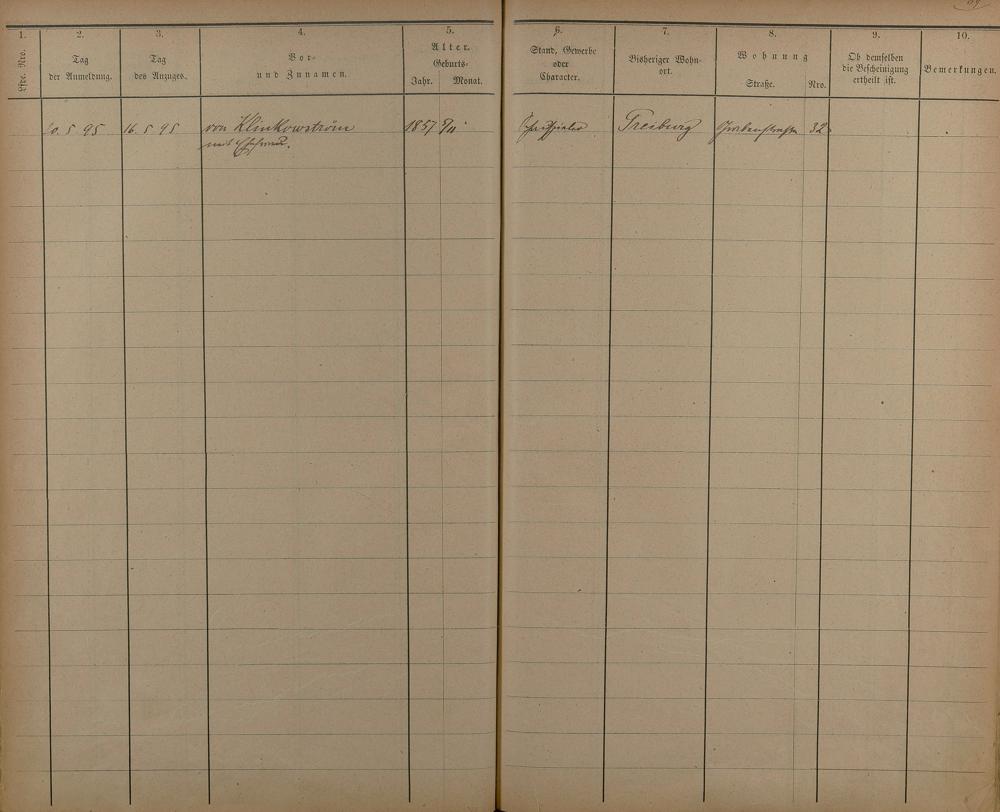 1. 2. 3. 4. 5. 6. 7. 8. 9. 10.
Lfde. Nro.
Tag
der Anmeldung.
Tag
des Anzuges.
Vor-
und Zunamen.
Alter.
Geburts-
Jahr. Monat.
Stand, Gewerbe
oder
Character.
Bisheriger Wohn-
ort.
Wohnung
Straße. Nro.
Ob demselben
die Bescheinigung
ertheilt ist.
Bemerkungen.
20. 5 95 16. 5 95 von Klinkowström 1857 5/11 Schauspieler Freiburg 32
mit Ehefrau.